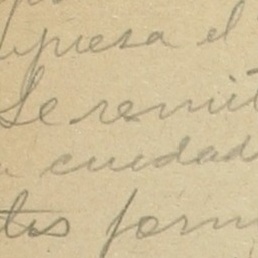 upresa el
Se remit
cuidad
tes form